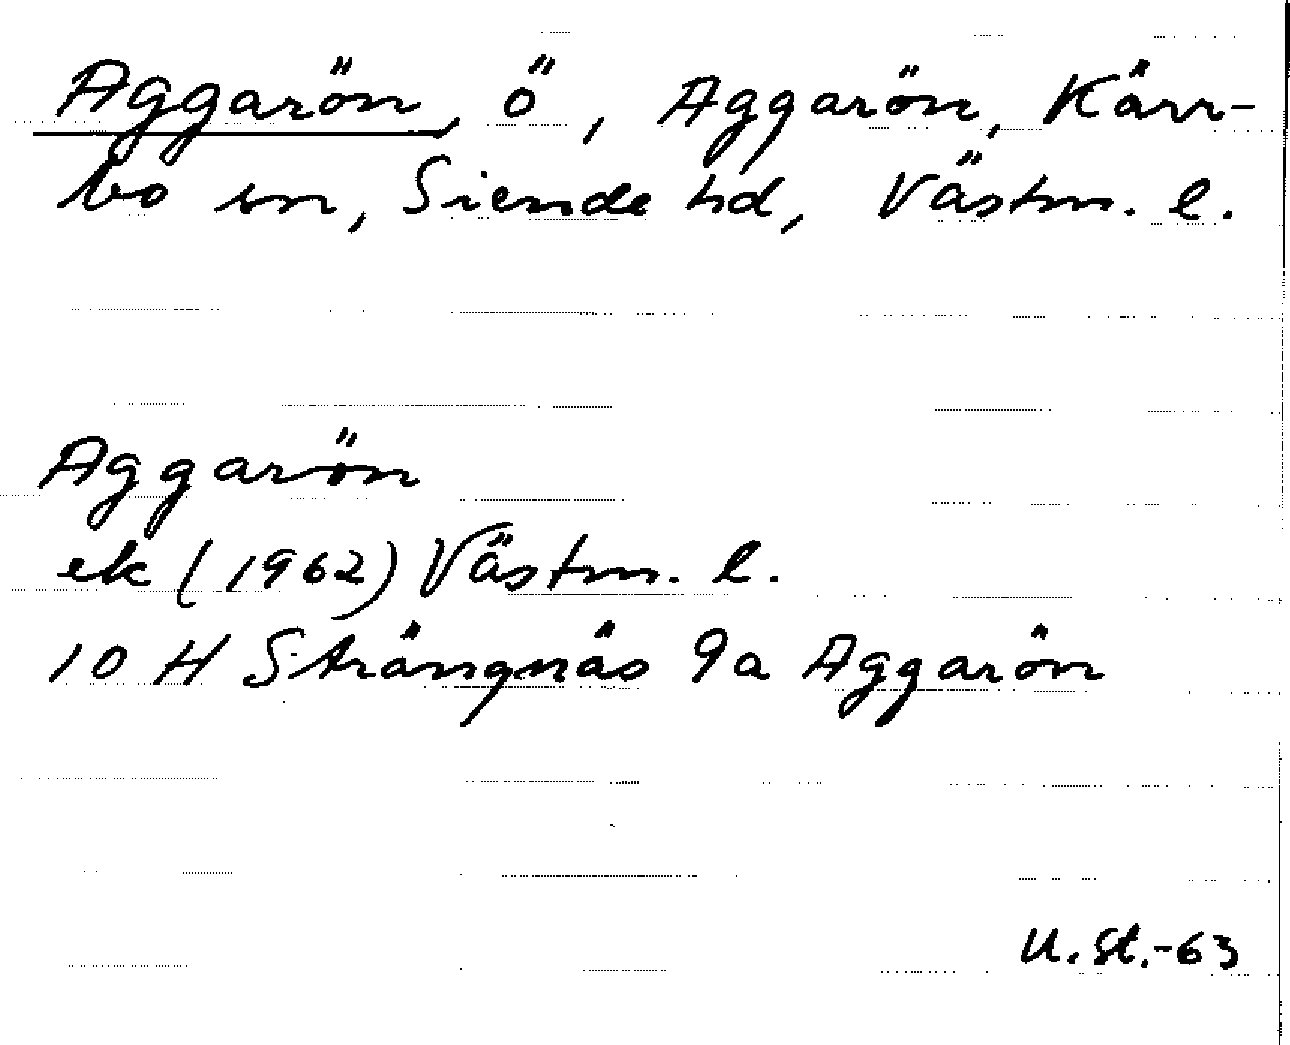 Aggarön, ö, Aggarön, Kärr-
bo sn, Siende hd, Västm. l.
Aggarön
ek (1962) Västm. l.
10 H Strängnäs 9a Aggarön
U. St.-63